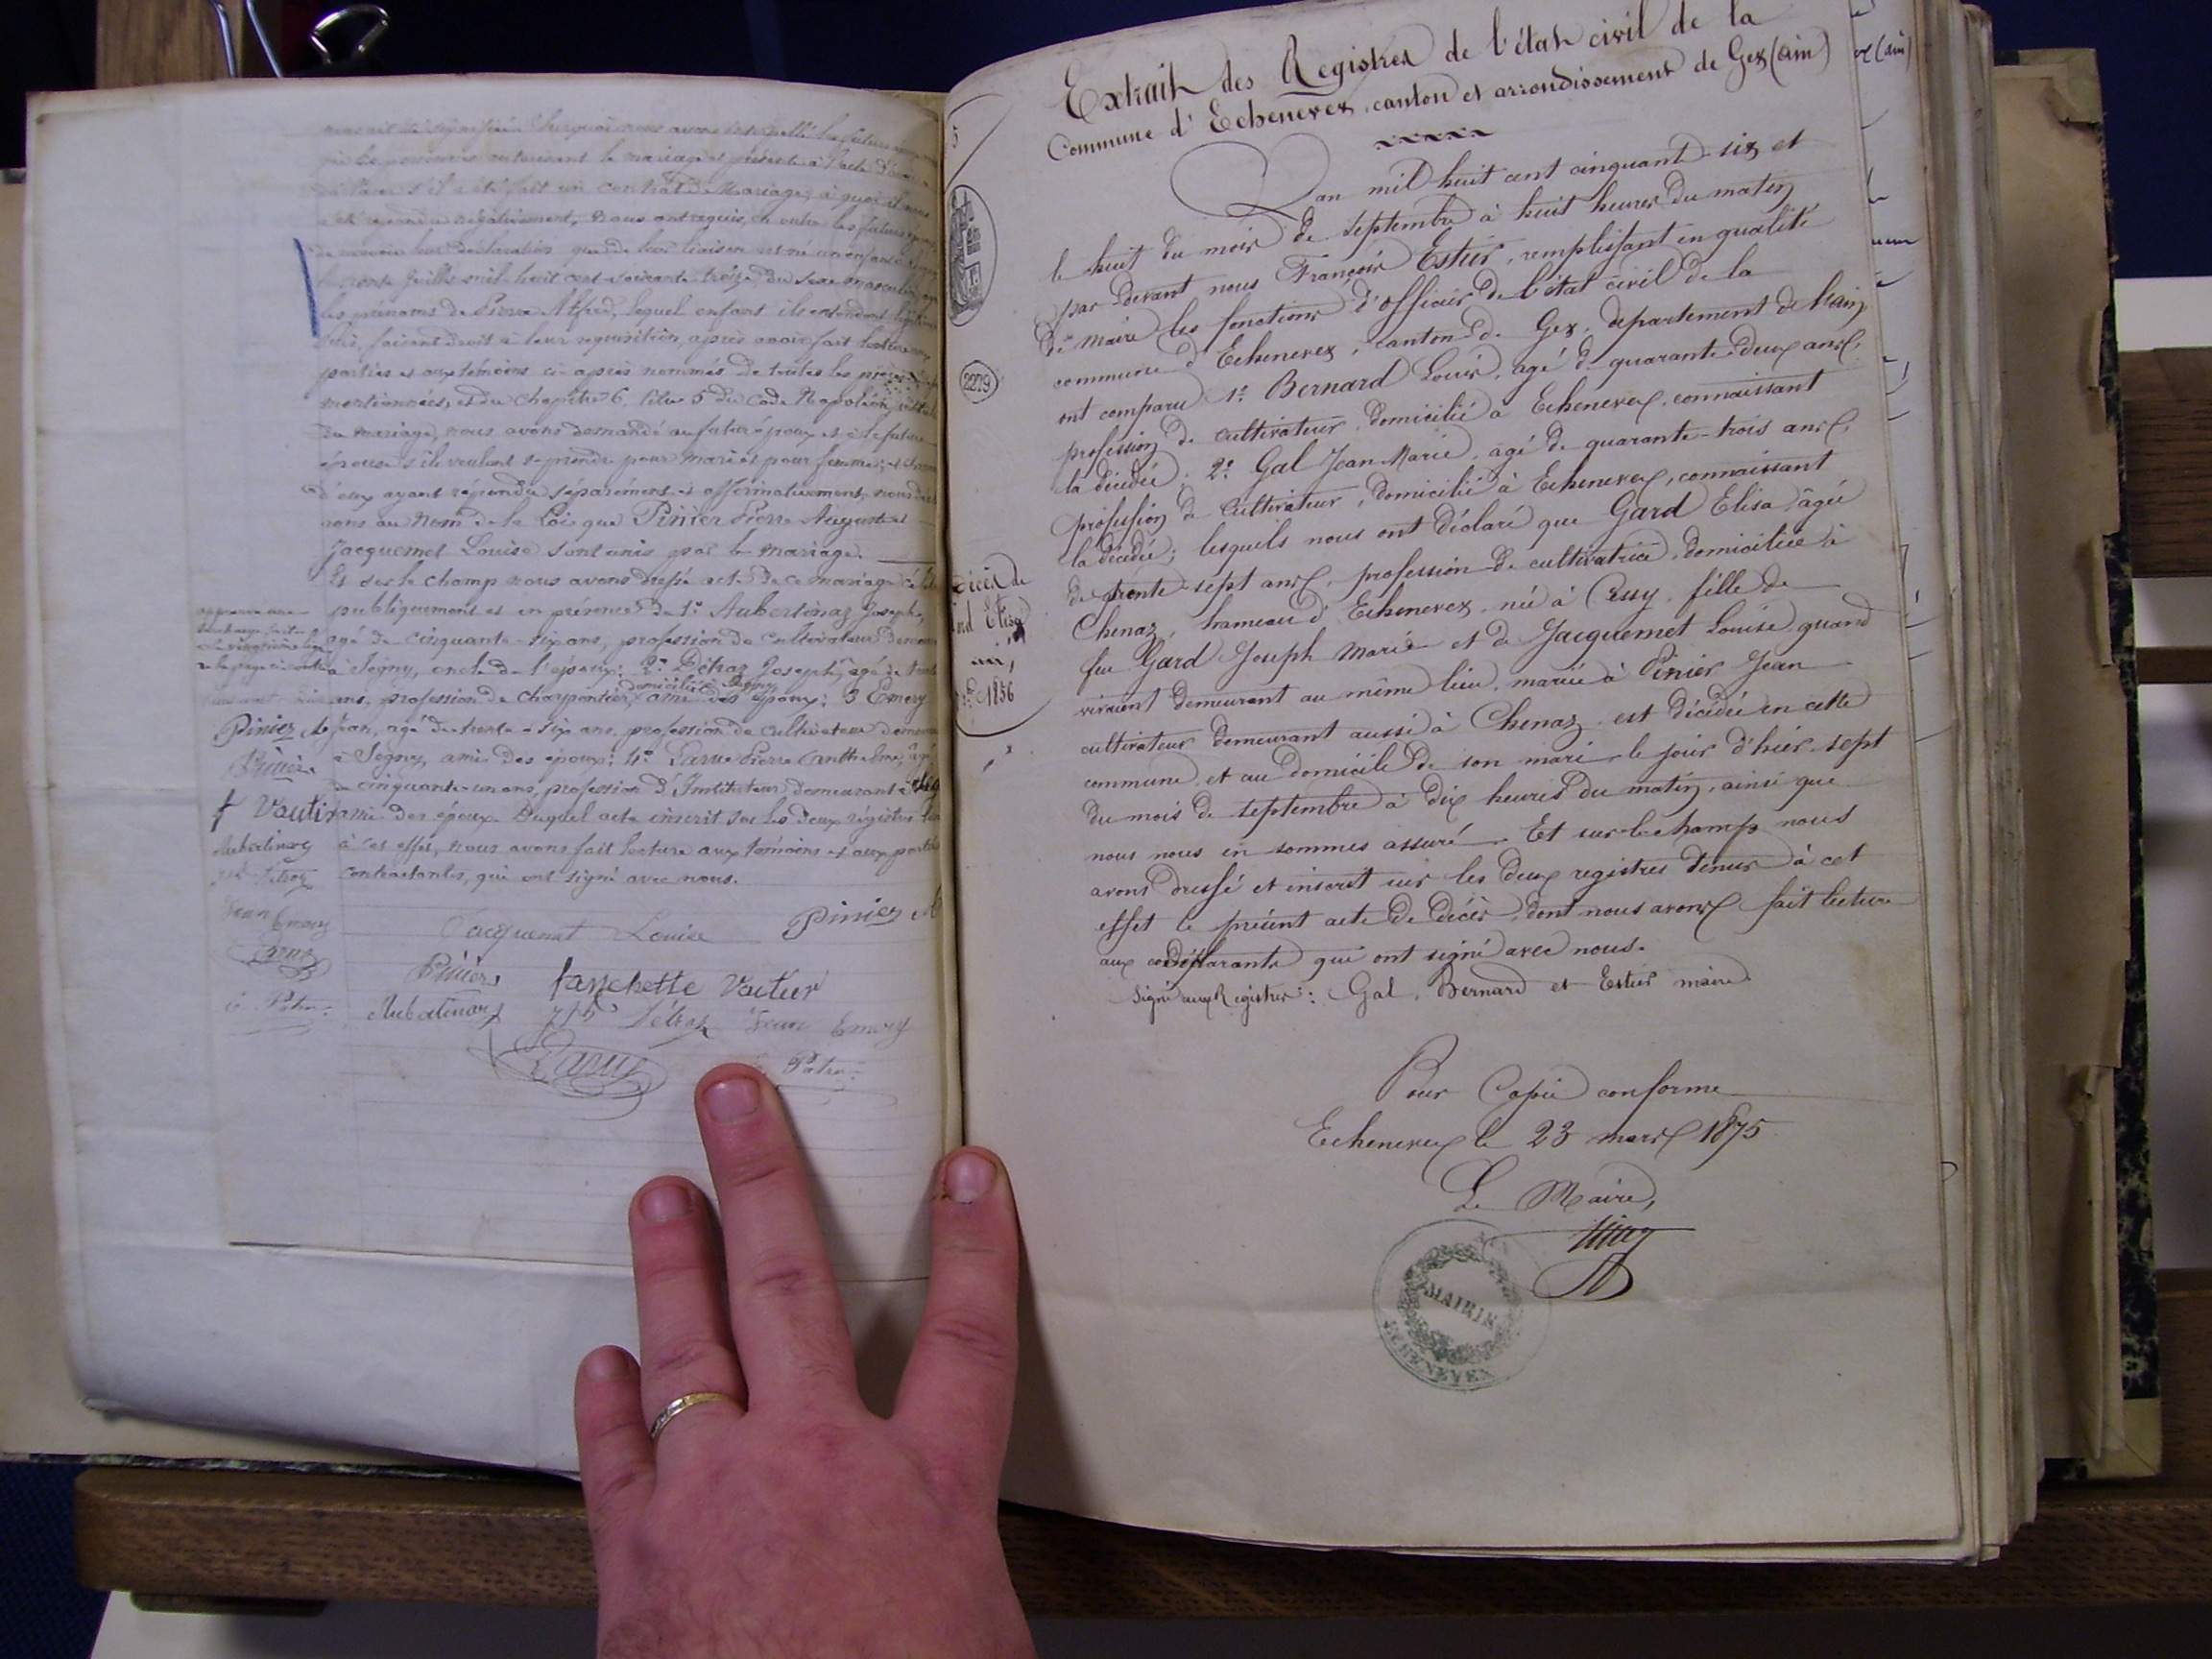 a été répondu négativement, nous ont requis, en outre les futurs
de recevoir leur déclaration que de leur liaison est né un enfant
mil huit cent soixante-treize, du sexe masculin
les prénoms de Pierre Alfred, lequel enfant ils entendent
faisant droit à leur réquisition, après avoir fait lecture aux
parties et aux témoins ci-après nommés de toutes les pièces
mentionnées, et du chapitre 6, titre 5 du Code Napoléon,
du mariage, nous avons demandé au futur époux et à la future
épouse s'ils veulent se prendre pour mari et pour femme; et chacun
d'eux ayant répondu séparément et affirmativement, nous
rons au nom de la Loi que Pinier Pierre Auguste et
Jacquemet Louise sont unis par le mariage.
Et sur le champ nous avons dressé acte de ce mariage
publiquement et en présence de 1° Aubertinaz Joseph,
agé de cinquante-six ans, profession de cultivateur
à Segny, oncle de l'époux; 2° Détraz Joseph, agé de
ans, profession de charpentier, domicilié à Segny ami des époux; 3° Emery
Jean, agé de trente-six ans, profession de cultivateur
à Segny, ami des époux; 4° Larue Pierre Anthelme,
cinquante-un ans, profession d'Instituteur, demeurant à
ami des époux. Duquel acte inscrit sur les deux registres
à cet effet, nous avons fait lecture aux témoins et aux parties
contractantes, qui ont signé avec nous.
Pinier
Pinier
f Vautier
Aubertinaz
Jean Emery
Larue
Jacquemet Louise Pinier A
Pinier fanchette Vautier
Aubertinaz Jph Détraz Jean Emery
Larue
5
2279
Décès de
Gard Elisa
1856
Extrait des Registres de l'état civil de la
Commune d'Echenevex, canton et arrondissement de Gex (ain)
L'an mil huit cent cinquante-six et
le huit du mois de septembre à huit heures du matin
par devant nous François Estier, remplissant en qualité
de maire les fonctions d'officier de l'état civil de la
commune d'Echenevex, canton de Gex, département de l'ain,
ont comparu 1° Bernard Louis, agé de quarante-deux ans,
profession de cultivateur, domicilié à Echenevex, connaissant
la décédée; 2° Gal Jean Marie, agé de quarante-trois ans,
profession de cultivateur, domicilié à Echenevex, connaissant
la décédée; lesquels nous ont déclaré que Gard Elisa, âgée
de trente-sept ans, profession de cultivatrice, domiciliée à
Chenaz, hameau d'Echenevex, née à Cessy, fille de
feu Gard Joseph Marie et de Jacquemet Louise, quand
vivaient demeurant au même lieu, mariée à Pinier Jean
cultivateur demeurant aussi à Chenaz, est décédée en cette
commune, et au domicile de son mari le jour d'hier sept
du mois de septembre à dix heures du matin, ainsi que
nous nous en sommes assuré. Et sur-le-champ nous
avons dressé et inscrit sur les deux registres tenus à cet
effet le présent acte de décès, dont nous avons fait lecture
aux codéclarants qui ont signé avec nous.
Signé aux Registres: Gal, Bernard et Estier maire.
Pour Copie conforme
Echenevex le 23 mars 1875
Le Maire,
MAIRIE
ECHENEVEX
ex (ain)